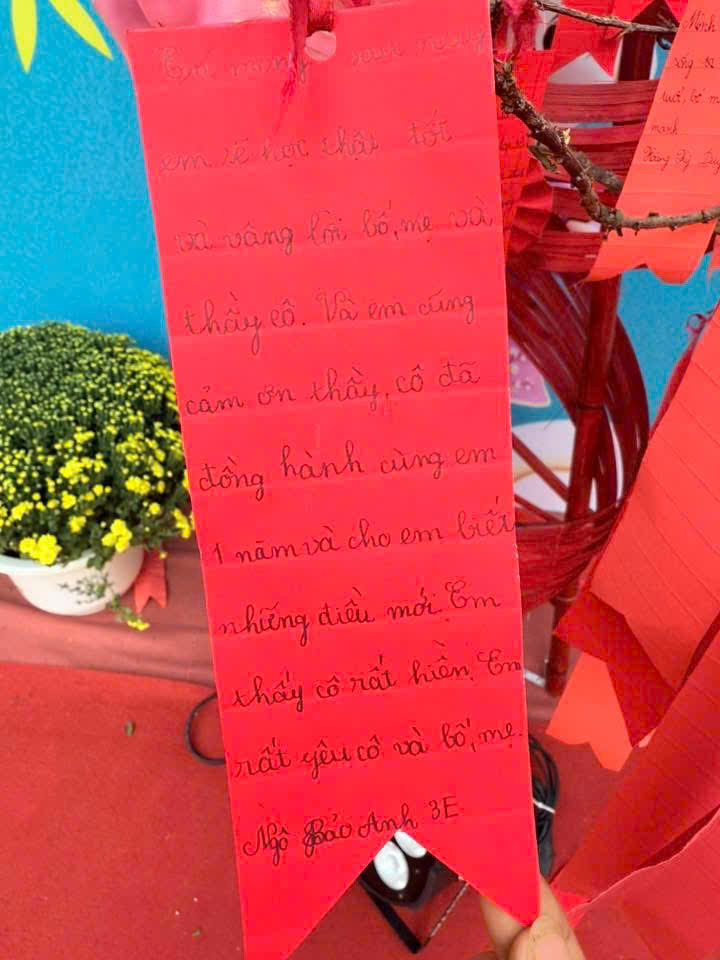 Em mong sau này
em sẽ học thật tốt
và vâng lời bố, mẹ và
thầy cô. Và em cũng
cảm ơn thầy, cô đã
đồng hành cùng em
1 năm và cho em biết
những điều mới Em
thấy cô rất hiền. Em
rất yêu cô và bố, mẹ.
Ngô Bảo Anh 3E
Minh
mạnh